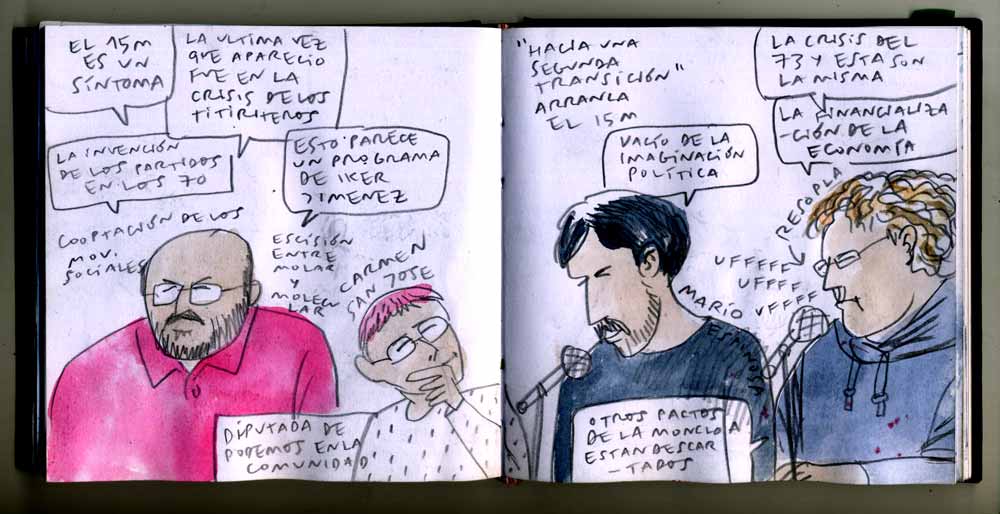 EL 15M
ES UN
SÍNTOMA
LA ULTIMA VEZ
QUE APARECIO
FUE EN LA
CRISIS DE LOS
TITIRITEROS
LA INVENCIÓN
DE LOS PARTIDOS
EN LOS 70
ESTO PARECE
UN PROGRAMA
DE IKER
JIMENEZ
COOPTACIÓN DE LOS
MOV.
SOCIALES
ESCISIÓN
ENTRE
MOLAR
Y
MOLECU
LAR
CARMEN
SAN JOSE
DIPUTADA DE
PODEMOS EN LA
COMUNIDAD
"HACIA UNA
SEGUNDA
TRANSICIÓN"
ARRANCA
EL 15M
LA CRISIS DEL
73 Y ESTA SON
LA MISMA
LA FINANCIALIZA
-CIÓN DE LA
ECONOMÍA
VACÍO DE LA
IMAGINACIÓN
POLÍTICA
RESOPLA
UFFFFF
UFFFF
UFFFF
MARIO
ESPINOZA
OTROS PACTOS
DE LA MONCLOA
ESTAN DESCAR
-TADOS